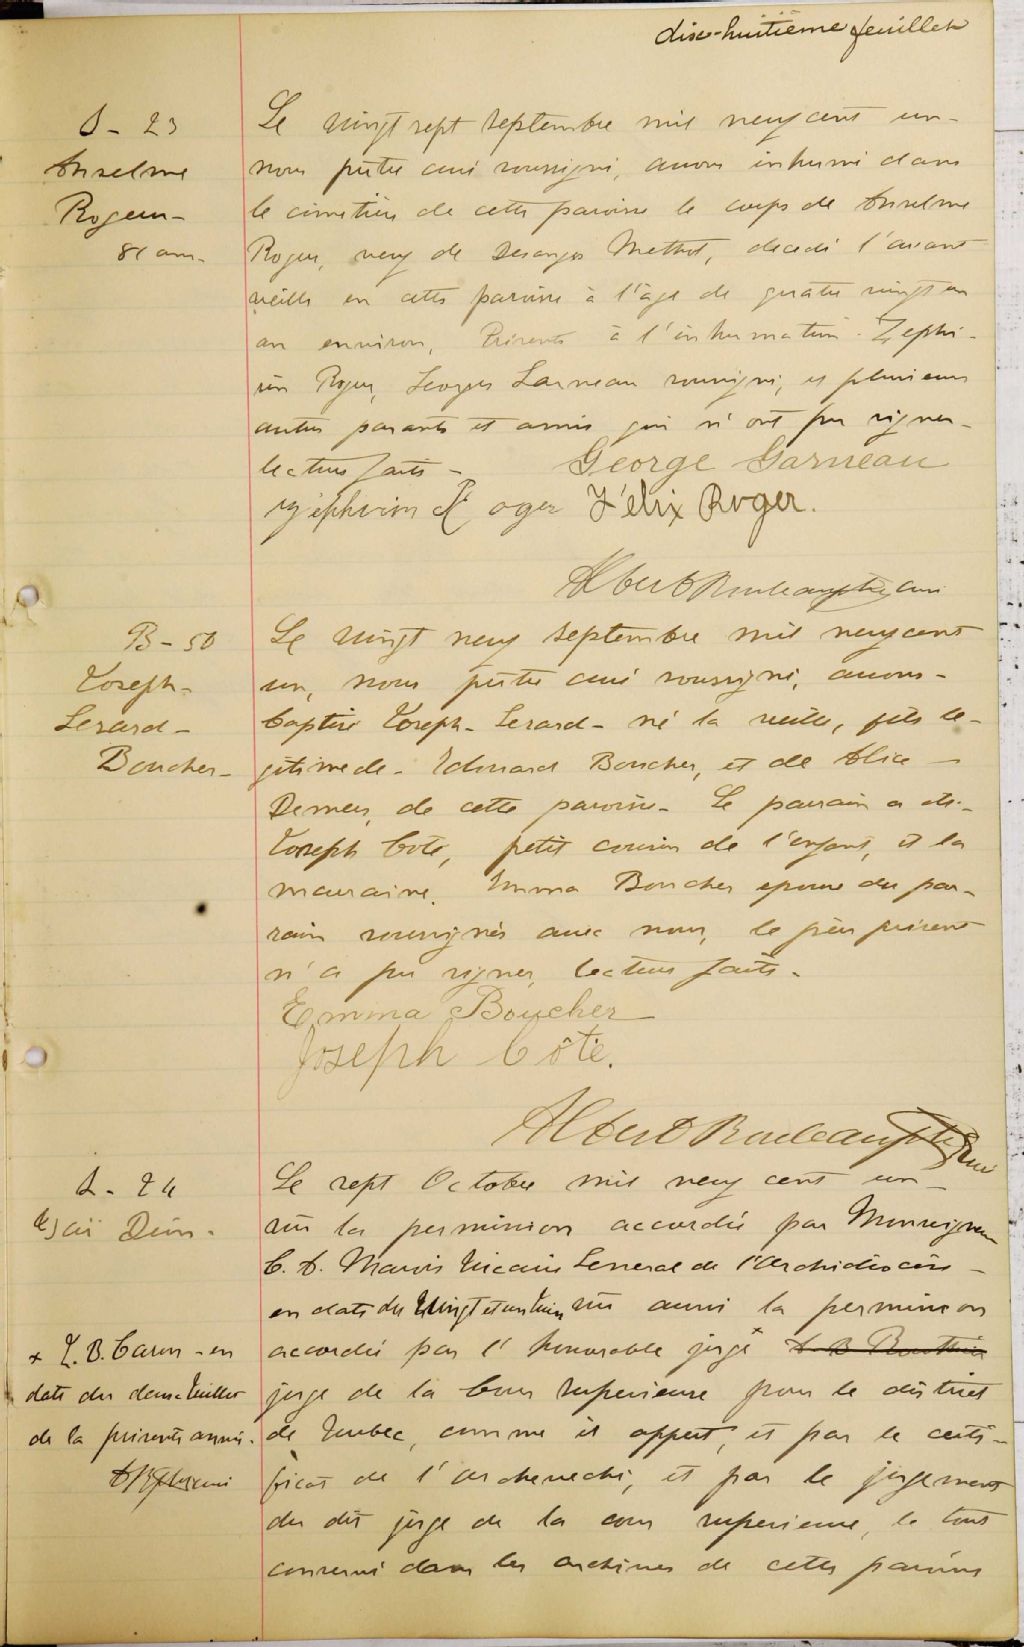 dix-huitième feuillet
S - 23
Anselme
Roger -
81 ans.
Le vingt sept septembre mil neuf cent un -
nous prêtre curé soussigné, avons inhumé dans
le cimetière de cette paroisse le corps de Anselme
Roger, veuf de Desanges Methot, décédé l'avant
veille en cette paroisse à l'âge de quatre vingt un
an environ, Présents à l'inhumation - Zéphi-
rin Roger, Georges Garneau soussigné, et plusieurs
autres parents et amis qui n'ont pu signer -
lecture faite -
George Garneau
zéphirin Roger Félix Roger.
Albert Rouleau ptre curé
B - 50
Joseph -
Gérard -
Boucher -
Le vingt neuf septembre mil neuf cent
un, nous prêtre curé soussigné, avons -
baptisé Joseph - Gérard - né la veille, fils lé-
gitime de - Edouard Boucher, et de Alice -
Demers, de cette paroisse - Le parrain a été -
Joseph Coté, petit cousin de l'enfant, et la
marraine, Emma Boucher épouse du par-
rain soussignés avec nous, le père présent
n'a pu signer, lecture faite -
Emma Boucher
Joseph Côté.
Albert Rouleau ptre curé
S - 24
Dion -
Le sept Octobre mil neuf cent un -
vu la permission accordée par Monseigneur
C. A. Marois Vicaire Général de l'Archidiocèse -
en date du vingt et un Juin vu aussi la permission
accordée par l'honorable juge x
x L. B. Caron - en
date du douze Juillet
de la présente année.
juge de la Cour supérieure pour le district
de Québec, comme il appert, et par le certi-
ficat de l'archevêché, et par le jugement
du dit juge de la cour supérieure, le tout
conservé dans les archives de cette paroisse